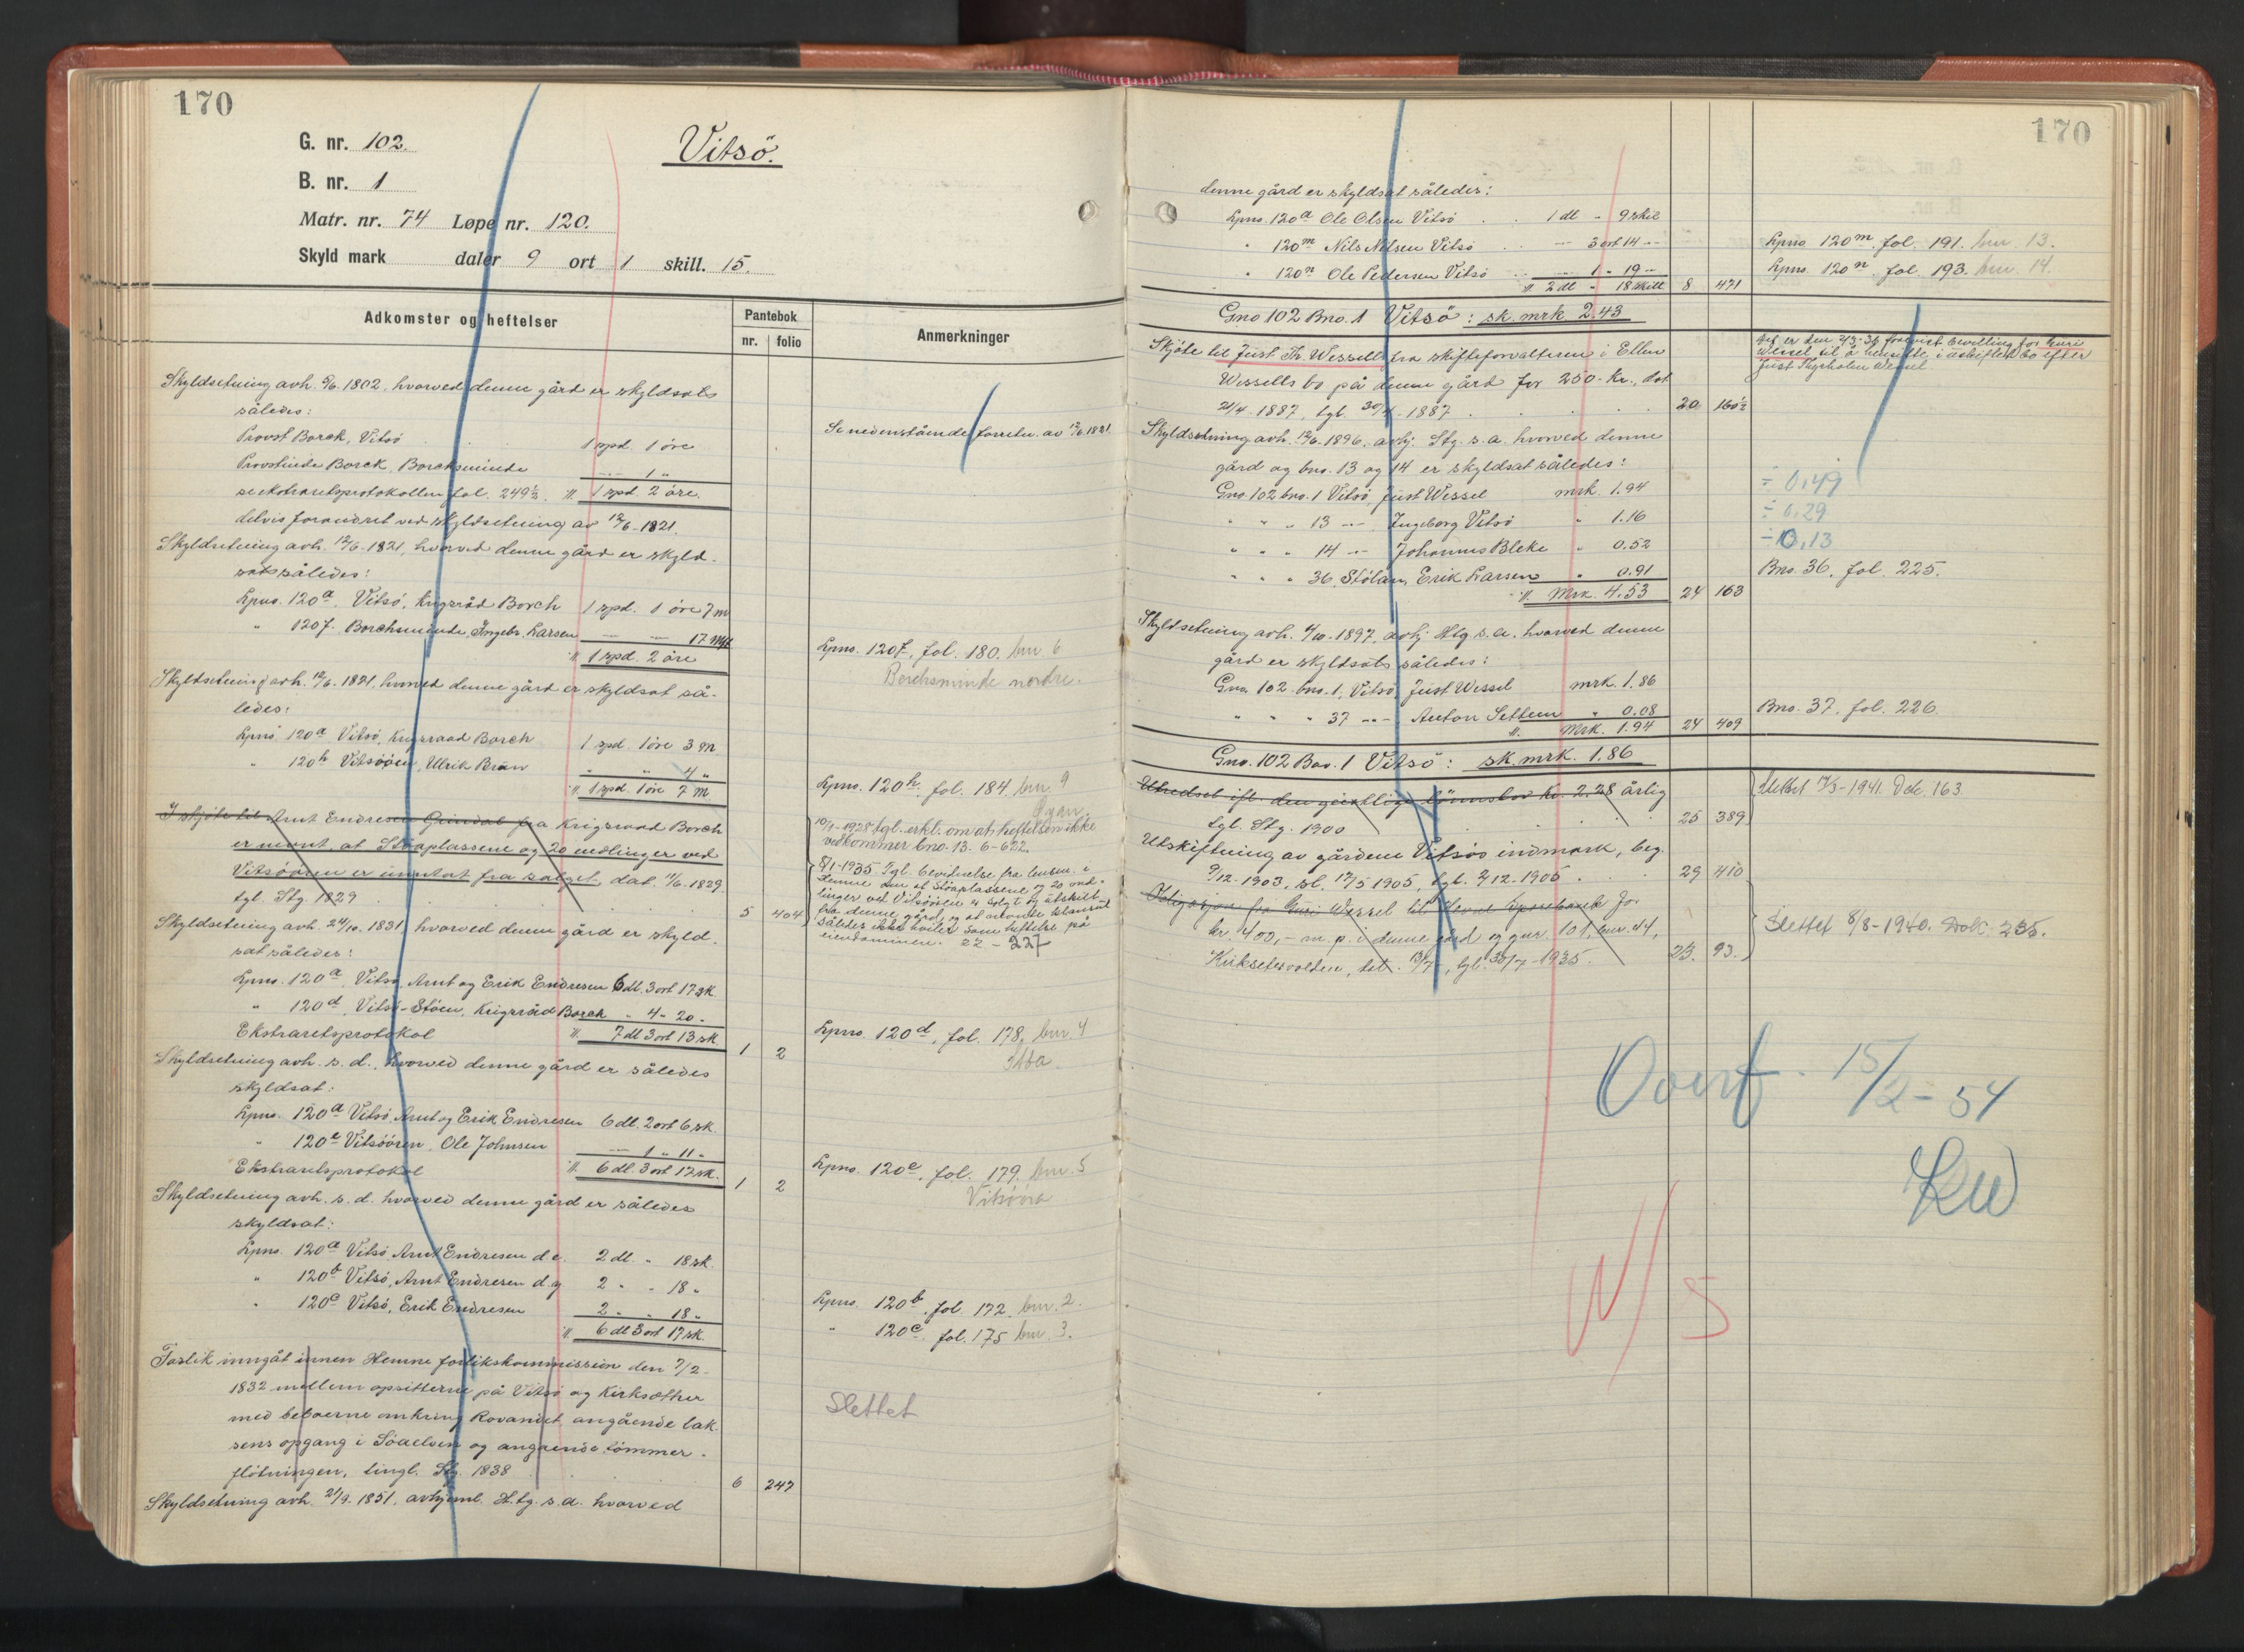 170
G. nr. 102.
Vitsö.
B. nr. 1
Matr. nr. 74 Løpe nr. 120.
Skyld mark daler 9 ort 1 skill. 15.
Adkomster og heftelser
Pantebok
nr. folio
Anmerkninger
Skyldsetning avh. 9/6. 1802, hvorved denne gård er skyldsats
således:
Provst Borck, Vitsö 1 spd. 1 öre
Provstinde Borck, Borchsminde 1 "
se ekstraretsprotokollen fol. 249½. 1 spd. 2 öre.
delvis forandret ved skyldsetning av 12/6-1821.
Se nedenstående forretn. av 12/6 1821.
Skyldsetning avh. 12/6-1821, hvorved denne gård er skyld-
sats således:
Lpno. 120a, Vitsö, Krigsråd Borch 1 spd. 1 öre 7 m
" 120f. Borchsminde, Ingebr. Larsen 17 mkl
1 spd. 2 öre
Lpno. 120f, fol. 180. bnr. 6
Borchsminde nordre.
Skyldsetning avh. 12/6-1821, hvorved denne gård er skyldsat så-
ledes:
Lpno. 120a Vitsö, Krigsraad Borch 1 spd. 1 öre 3 m
" 120h Vitsöören, Ulrik Brun " " 4 "
1 spd 1 öre 7 m
Lpno. 120h, fol. 184 bnr. 9
Øyan.
I skjöte til Arnt Endresen Grindal fra Krigsraad Borch
er mont. at Stöaplassene og 20 medlinger ved
Vitsöören er unntat fra salget, dat. 11/6-1829.
tgl. Stg. 1829 5 404
10/1-1928 tgl. erkl. om at heftelsen ikke
vedkommer bno. 13. 6-622.
8/1-1935. Tgl. bevidnelse fra lensm. i
Hemne om at Stöaplassene og 20 med-
linger ved Vitsöören er solgt og utskilt
fra denne gård, og at nevnte klausul
således ikke hviler som heftelse på
eiendommen. 22-227
Skyldsetning avh. 24/10. 1831 hvorved denne gård er skyld-
sat således:
Lpno. 120a, Vitsö, Arnt og Erik Endresen 6 dl. 3 ort 17 sk.
" 120d, Vitsö-Stöen, Krigsråd Borch " 4 " 20 "
Ekstraretsprotokol 7 dl 3 ort 13 sk. 1 2
Lpno. 120d, fol. 178, bnr. 4
Støa.
Skyldsetning avh. s. d., hvorved denne gård er således
skyldsat:
Lpno. 120a Vitsö, Arnt og Erik Endresen 6 dl. 2 ort 6 sk.
" 120e Vitsöören, Ole Johnsen 1 " 11 "
Ekstraretsprotokol 6 dl. 3 ort 17 sk. 1 2
Lpno. 120e, fol. 179, bnr. 5
Vitsøora
Skyldsetning avh. s. d. hvorved denne gård er således
skyldsat:
Lpno. 120a Vitsö Arnt Endresen d.e. 2 dl. " 18 sk.
" 120b Vitsö, Arnt Endresen d.y 2 " " 18 "
" 120c Vitsö, Erik Endresen 2 " " 18 "
6 dl 3 ort 17 sk.
Lpno. 120b, fol. 172. bnr. 2.
" 120c, fol. 175 bnr. 3.
Forlik inngåt innen Hemne forlikskommission den 7/2-
1832 mellem opsitterne på Vitsö og Kirksæther
med beboerne omkring Rovandet angående lak-
sens opgang i Söaelven og angående tömmer-
flötningen, tingl. Stg. 1838 6 247
Slettet
Skyldsetning avh. 24/9. 1851, avhjeml. H.tg. s. d. hvorved
170
denne gård er skyldsat således:
Lpno. 120a Ole Olsen Vitsö 1 dl " 9 skil
" 120m Nils Nilsen Vitsö 3 ort 14 "
" 120n Ole Pedersen Vitsö 1 " 19 "
2 dl " 18 skill 8 471
Lpno. 120m, fol. 191. bnr. 13.
Lpno. 120n, fol. 193. bnr. 14.
Gno 102 Bno. 1 Vitsö: sk. mrk. 2.43
Skjöte til Just Th. Wessell fra skifteforvalteren i Ellen
Wessells bo på denne gård for 250 kr., dat
21/4-1887, tgl. 30/4-1887 20 160½
Wessel til å hensitte i uskiftet bo efter
Just Thyrholm Wessel.
Skyldsetning avh. 12/6-1896, avhj. Stg. s. a. hvorved denne
gård og bno. 13 og 14 er skyldsat således:
Gno 102 bno. 1 Vitsö, Just Wessel mrk. 1.94
÷ 0,49
" " " 13 " Ingeborg Vitsö " 1.16
÷ 0,29
" " " 14 " Johannes Bleke " 0.52
÷ 0,13
" " " 36, Stölan, Erik Larsen " 0.91
Mrk. 4.53 24 163
Bno. 36, fol. 225.
Skyldsetning avh. 4/10-1897, avhj. Htg s. a. hvorved denne
gård er skyldsats således:
Gno. 102 bno. 1, Vitsö, Just Wessel mrk. 1.86
" " " 37 " Anton Settem " 0.08
Mrk. 1.94 24 409
Bno. 37, fol. 226.
Gno. 102 Bno. 1 Vitsö: sk. mrk. 1.86
Utredsel ifl. den geistlige lönnslov kr. 2.28 årlig
tgl. Stg. 1900 25 389
Slettet 14/3-1941. Dok. 163.
Utskiftning av gårdene Vitsös indmark, beg.
9/12-1903, sl. 12/5 1905, tgl. 7/12-1905 29 410
Obligasjon fra Guri Wessel til Hevne Sparebank for
kr. 400,- m. p. i denne gård og gnr. 101, bnr. 44,
Kirksetervolden, dat. 13/7, tgl. 30/7-1935. 23. 93.
Slettet 8/8-1940. Dok. 235.
Overf. 15/2-54